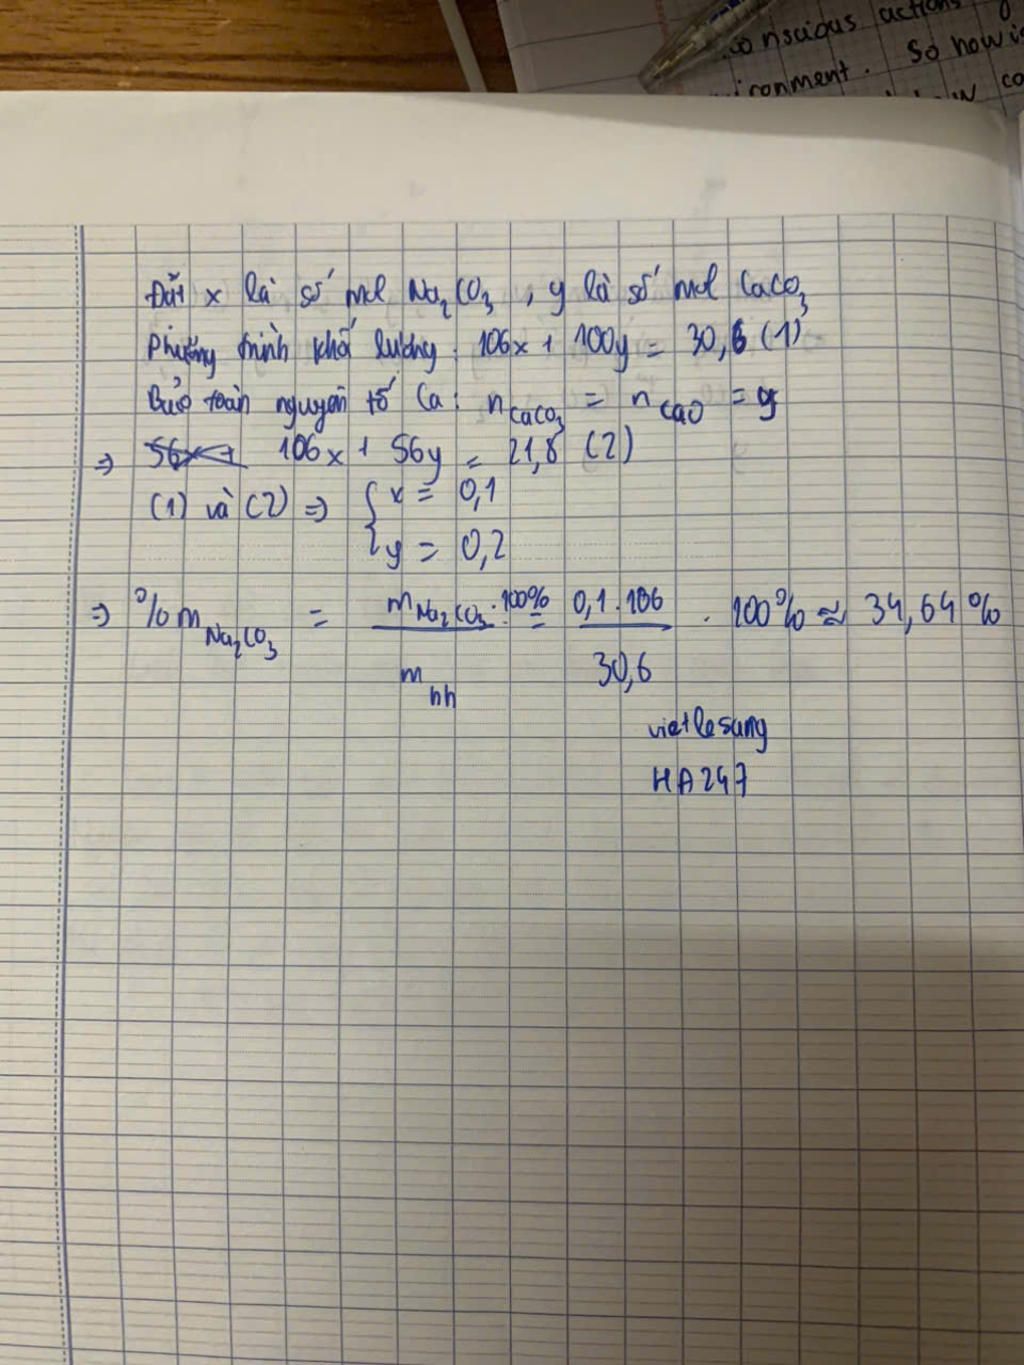 conscious actions
So how is
ironment.
co
Đặt x là số mol Na₂CO₃, y là số mol CaCO₃
Phương trình khối lượng: 106x + 100y = 30,6 (1)
Bảo toàn nguyên tố Ca: n CaCO₃ = n CaO = y
⇒ 56x + 106x + 56y = 21,8 (2)
(1) và (2) ⇒ { x = 0,1
y = 0,2
⇒ %m Na₂CO₃ = m Na₂CO₃ . 100% / m hh = 0,1 . 106 / 30,6 . 100% ≈ 34,64%
vietlesung
HA247